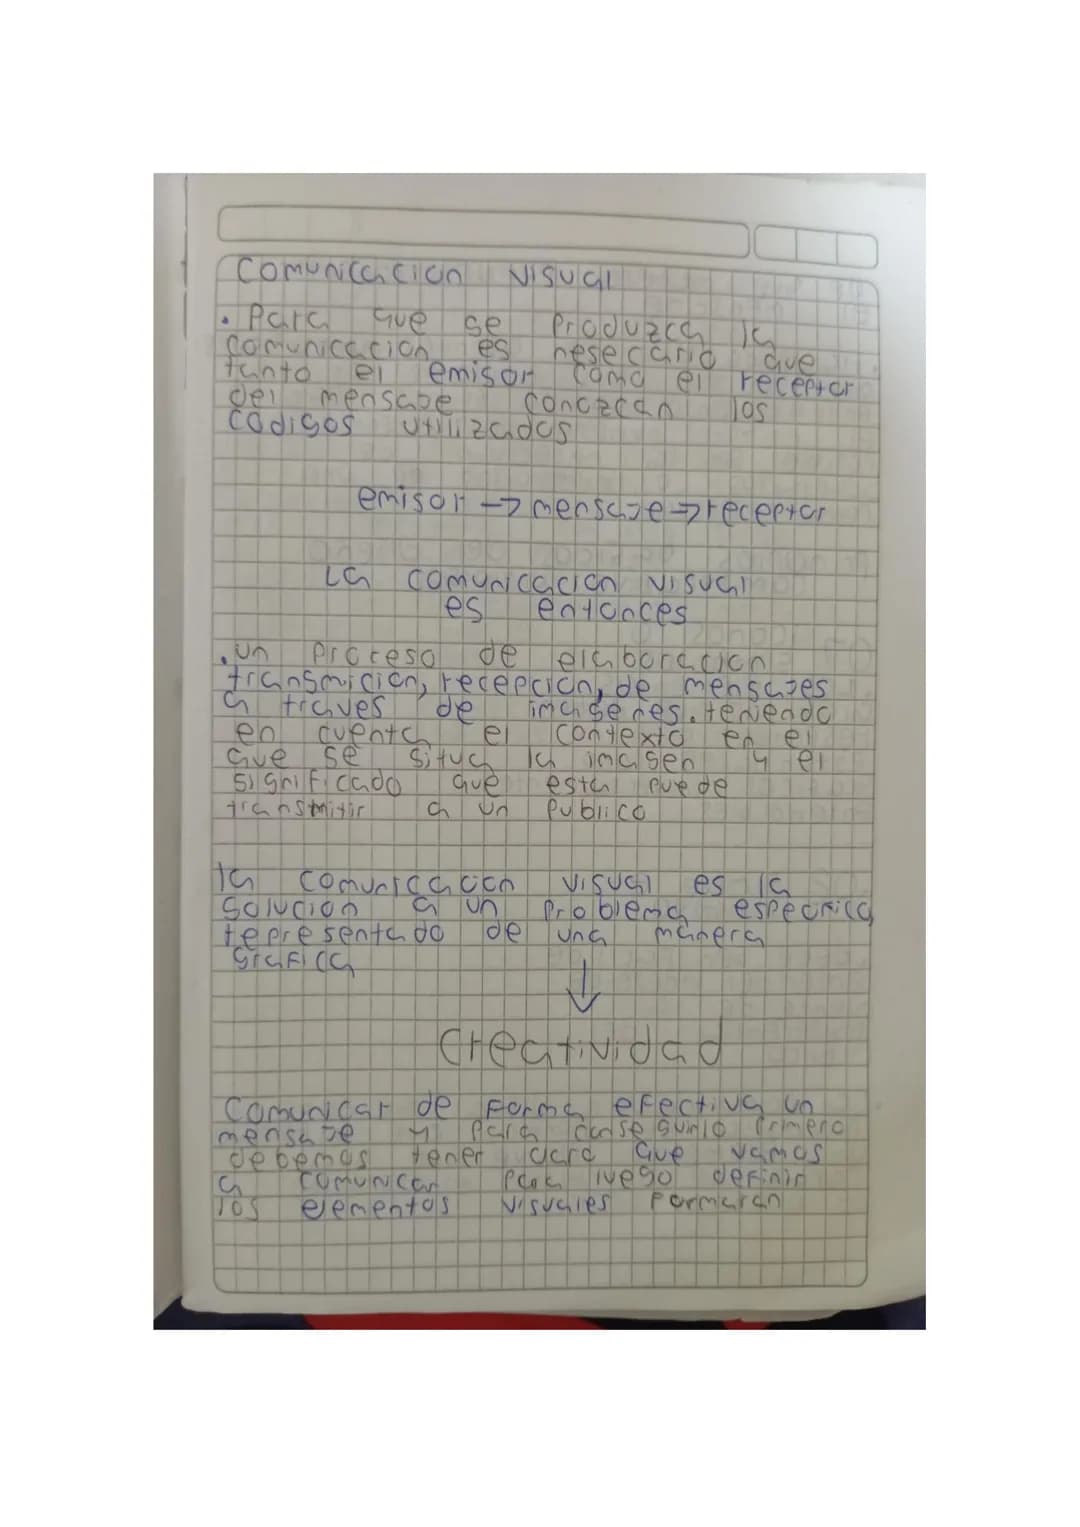 comunicacion visual
• Para que se produzca la
comunicacion es nesecario que
tanto el emisor como el receptor
del mensaje conozcan los
codigos utilizados
emisor → mensaje → receptor
La comunicacion visual
es entonces
• un proceso de elaboracion
transmicion, recepcion, de mensajes
a traves de imagenes. teniendo
en cuenta el contexto en el
que se situa la imagen y el
significado que esta puede
transmitir a un publico
la comunicacion visual es la
solucion a un problema especifica
representado de una manera
grafica
↓
creatividad
comunicar de forma efectiva un
mensaje y para conseguirlo primero
debemos tener claro que vamos
a comunicar para luego definir
los elementos visuales formaran